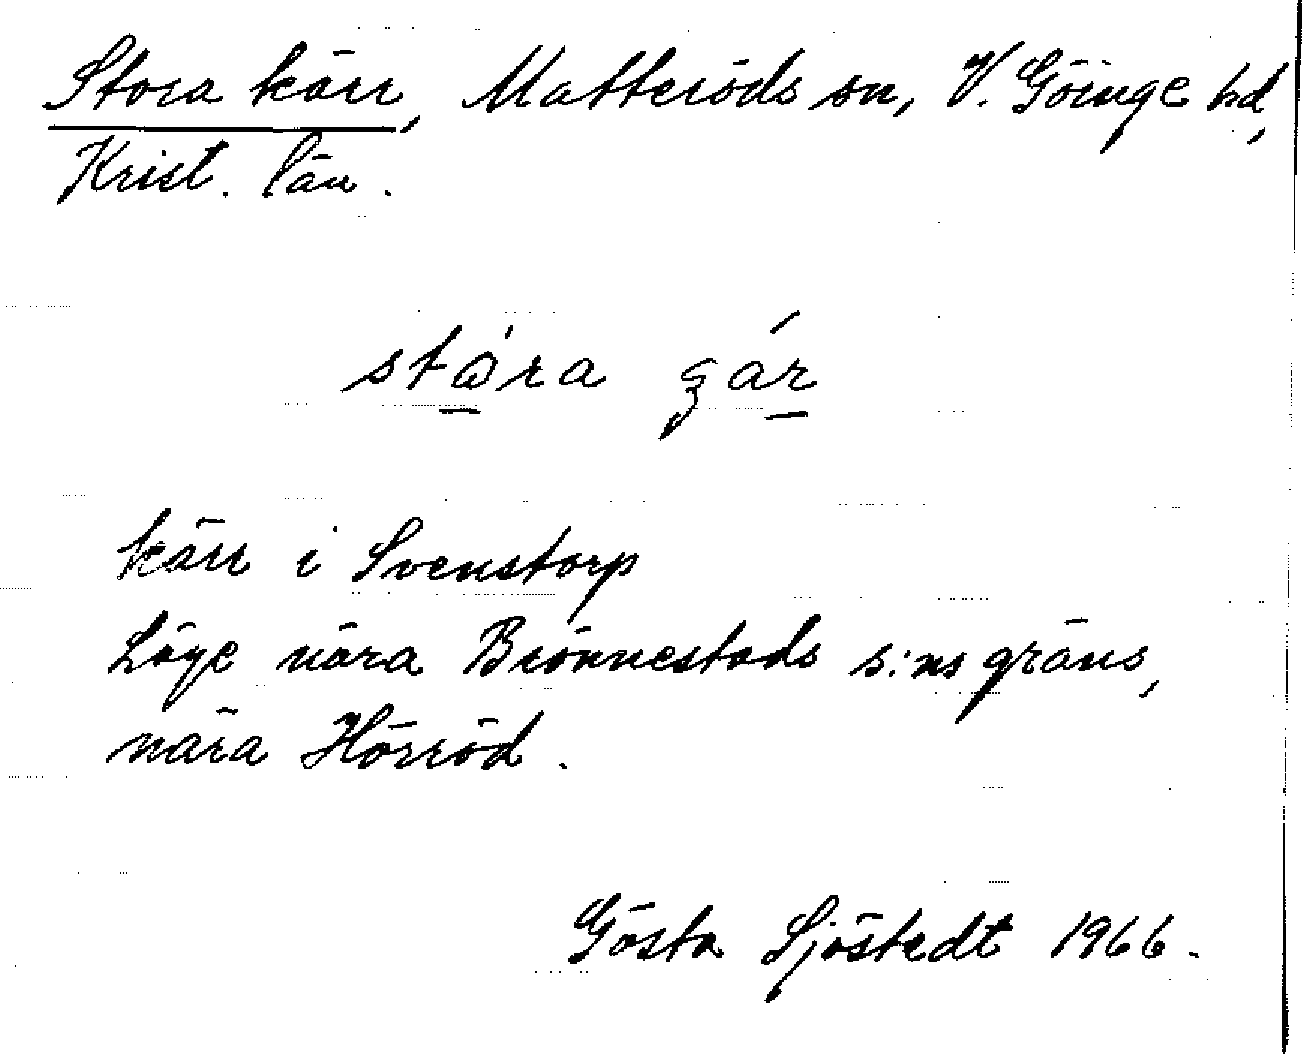 Stora kärr, Matteröds sn, V. Göinge hd,
Krist. län.
kärr i Svenstorp
Läge nära Brönnestads s:ns gräns,
nära Hörröd.
Gösta Sjöstedt 1966.